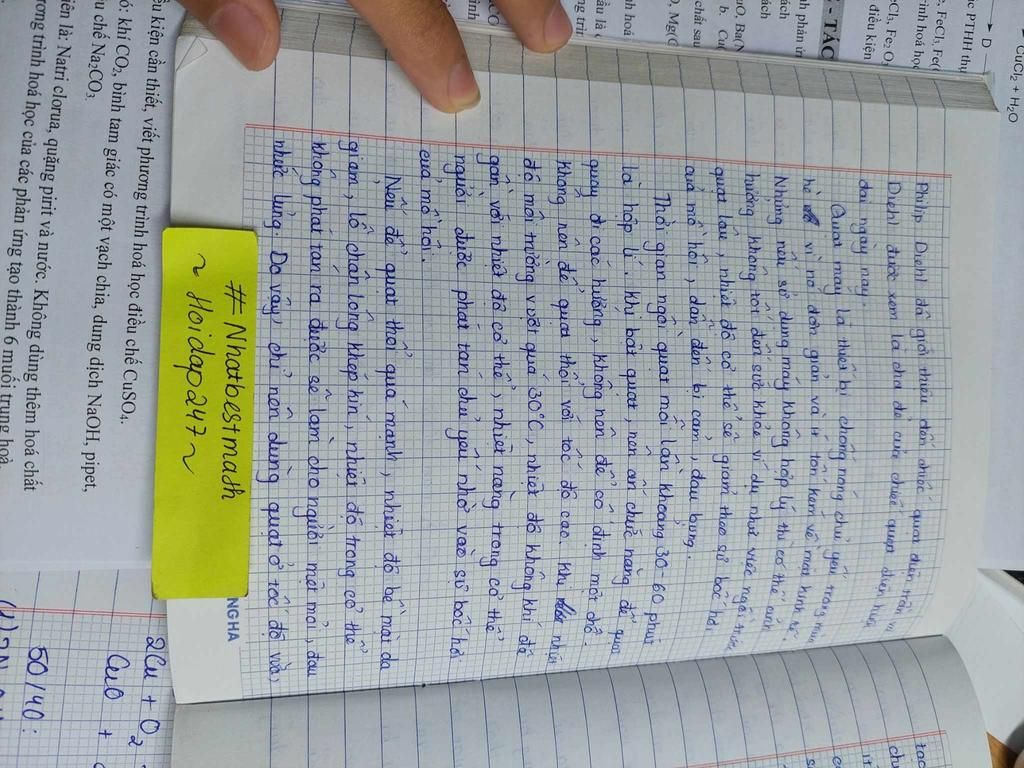 Philip Diehl đã giới thiệu đến chiếc quạt điện trần
Diehl được xem là cha đẻ của chiếc quạt điện hiện
đại ngày nay.
Quạt máy là thiết bị chống nóng chủ yếu trong mùa
hè vì nó đơn giản và ít tốn kém về mặt kinh tế.
Nhưng nếu sử dụng máy không hợp lý thì có thể ảnh
hưởng không tốt đến sức khỏe ví dụ như việc ngồi trước
quạt lâu, nhiệt độ cơ thể sẽ giảm theo sự bốc hơi
của mồ hôi, dẫn đến bị cảm, đau bụng.
Thời gian ngồi quạt mỗi lần khoảng 30-60 phút
là hợp lí. Khi bật quạt, nên ấn chức năng để quạt
quay đi các hướng, không nên để cố định một chỗ.
Không nên để quạt thổi với tốc độ cao. Khi nhiệt
độ môi trường vượt quá 30°C, nhiệt độ không khí đã
gần với nhiệt độ cơ thể, nhiệt năng trong cơ thể
người được phát tán chủ yếu nhờ vào sự bốc hơi
của mồ hôi.
Nếu để quạt thổi quá mạnh, nhiệt độ bề mặt da
giảm, lỗ chân lông khép kín, nhiệt độ trong cơ thể
không phát tán ra được sẽ làm cho người mệt mỏi, đau
nhức lưng. Do vậy, chỉ nên dùng quạt ở tốc độ vừa,
#Nhatbestmash
~ Hoidap247 ~
NGHA
CuCl₂ + H₂O
D
TÁC
kiện cần thiết, viết phương trình hoá học điều chế CuSO₄.
ó: khí CO₂, bình tam giác có một vạch chia, dung dịch NaOH, pipet,
u chế Na₂CO₃.
iện là: Natri clorua, quặng pirit và nước. Không dùng thêm hoá chất
ơng trình hoá học của các phản ứng tạo thành 6 muối trung hoà.
2Cu + O₂
CuO +
50/40: